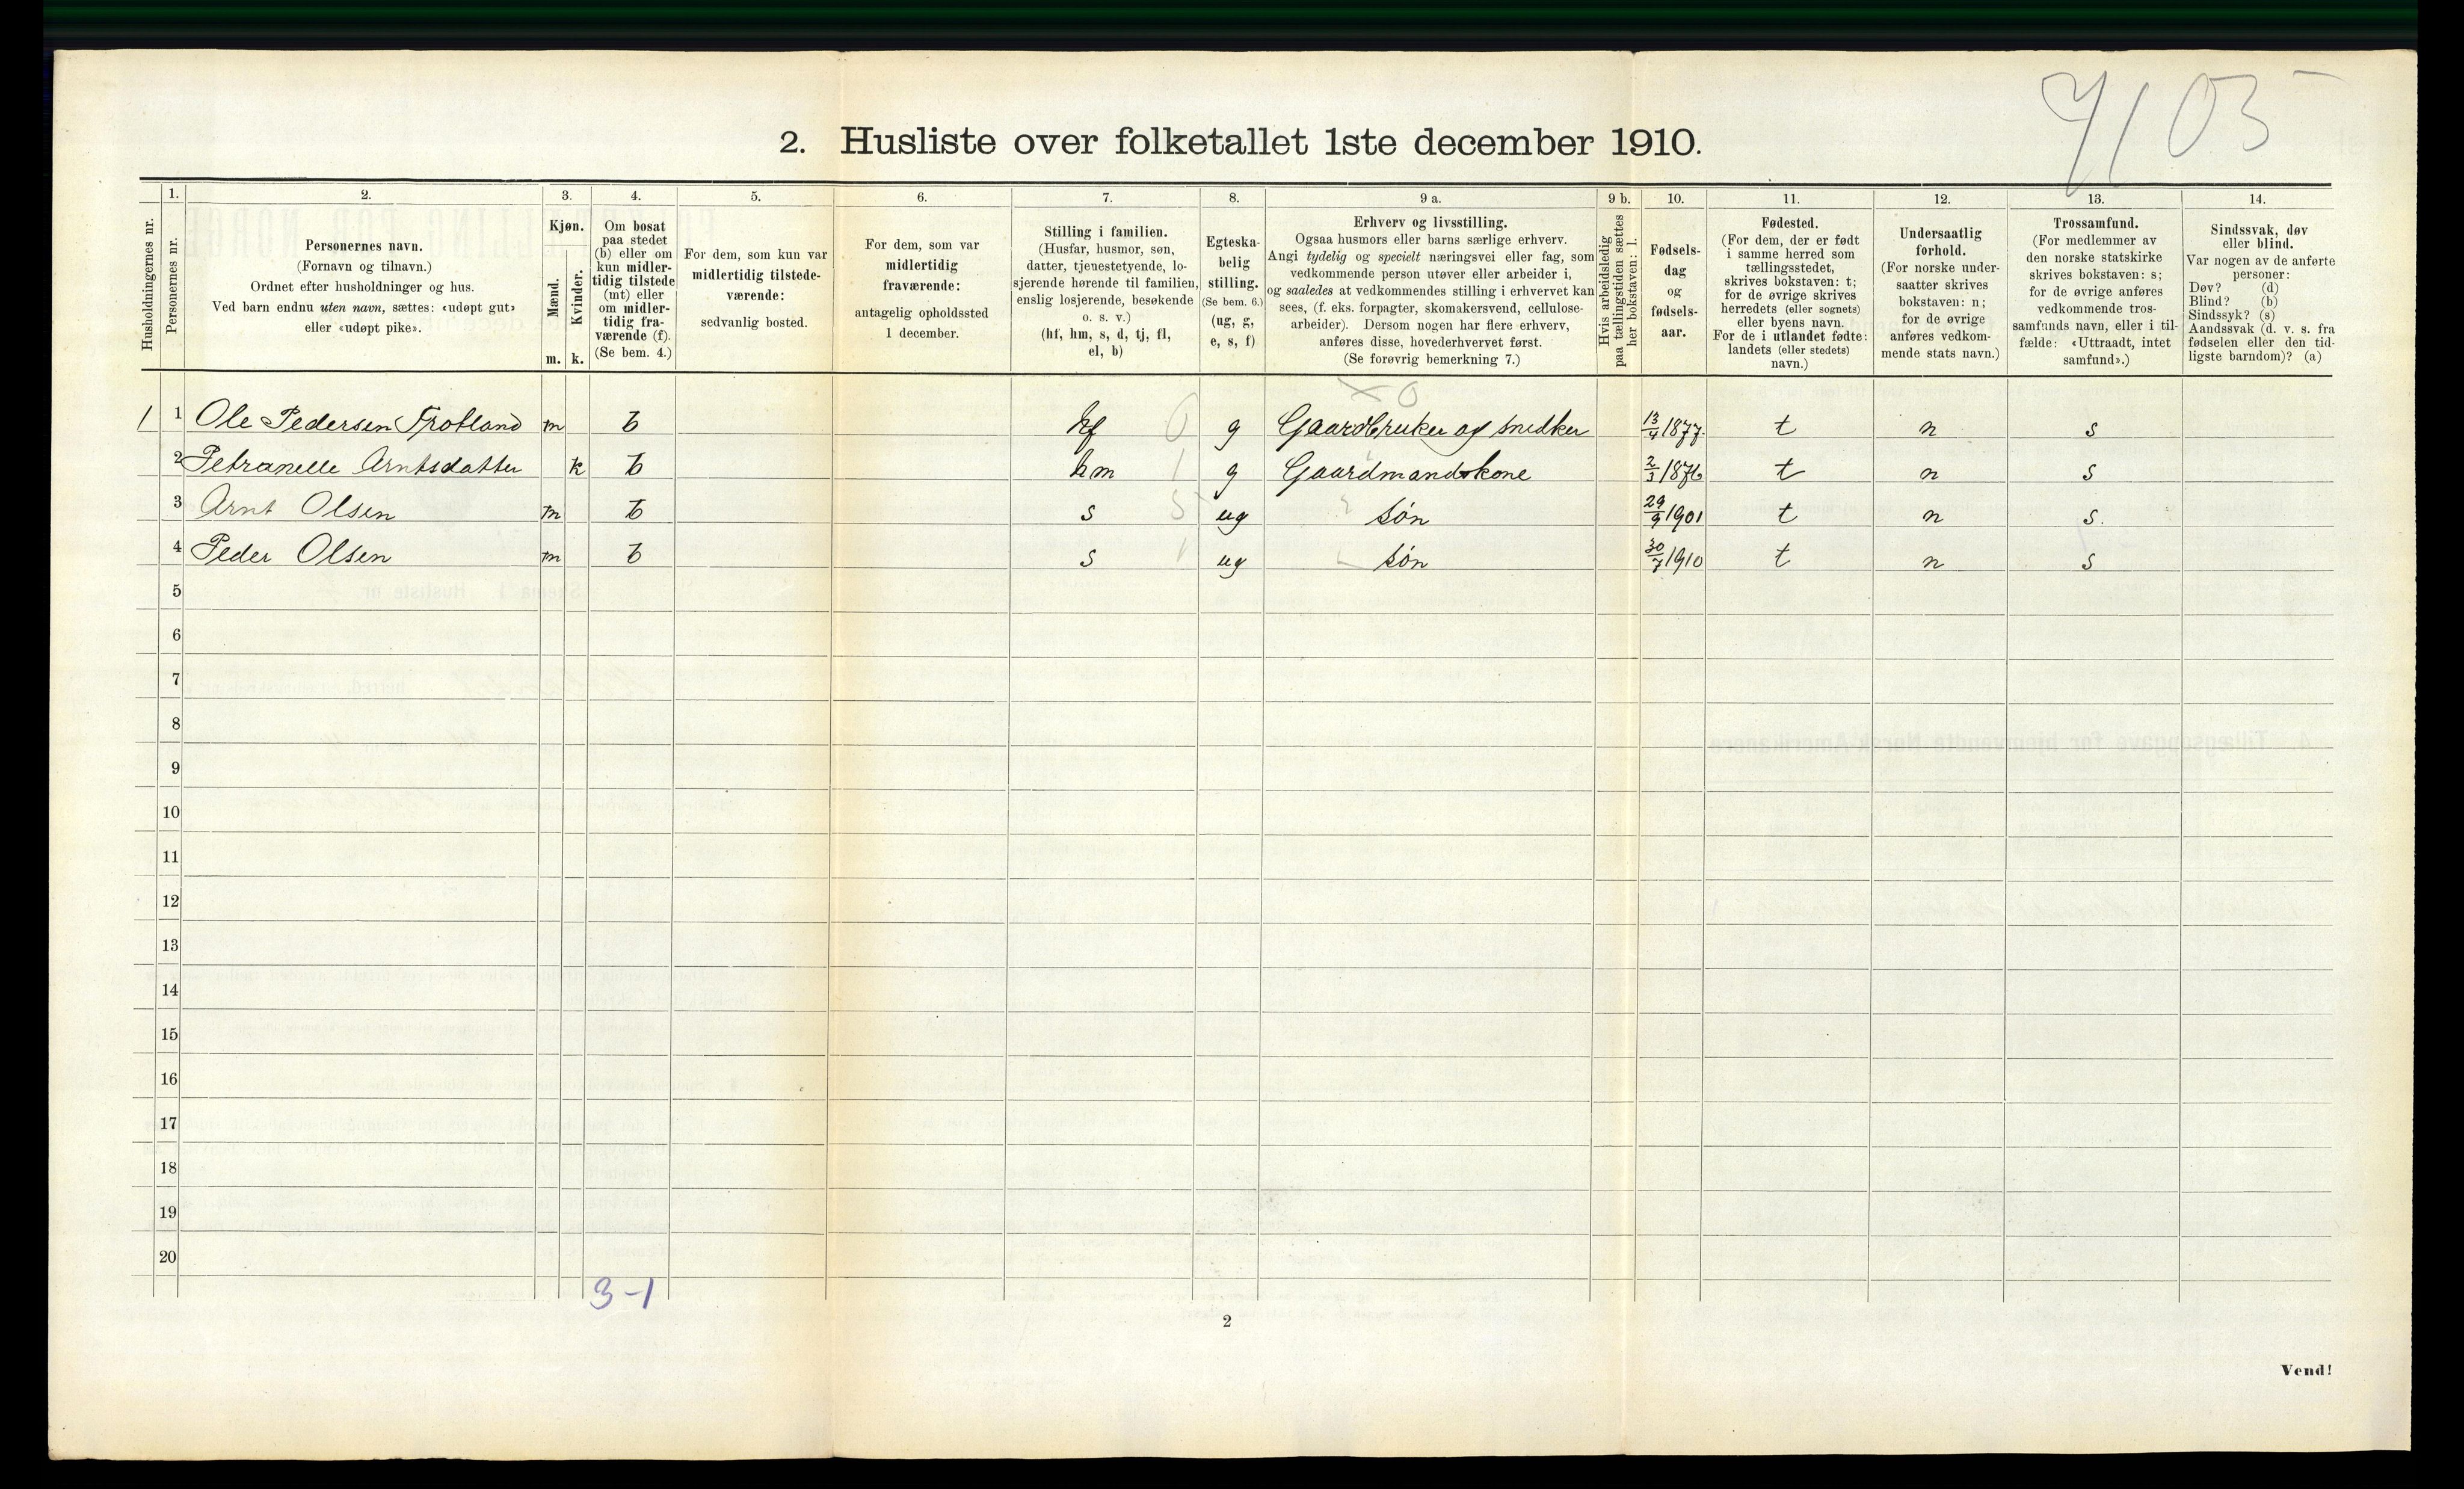 4105
2. Husliste over folketallet 1ste december 1910.
Husholdningernes nr.
1.
Personernes nr.
2.
Personernes navn.
(Fornavn og tilnavn.)
Ordnet efter husholdninger og hus.
Ved barn endnu uten navn, sættes: «udøpt gut»
eller «udøpt pike».
3.
Kjøn.
Mænd.
Kvinder.
m.
k.
4.
Om bosat
paa stedet
(b) eller om
kun midler-
tidig tilstede
(mt) eller
om midler-
tidig fra-
værende (f).
(Se bem. 4.)
5.
For dem, som kun var
midlertidig tilstede-
værende:
sedvanlig bosted.
6.
For dem, som var
midlertidig
fraværende:
antagelig opholdssted
1 december.
7.
Stilling i familien.
(Husfar, husmor, søn,
datter, tjenestetyende, lo-
sjerende hørende til familien,
enslig losjerende, besøkende
o. s. v.)
(hf, hm, s, d, tj, fl,
el, b)
8.
Egteska-
belig
stilling.
(Se bem. 6.)
(ug, g,
e, s, f)
9 a.
Erhverv og livsstilling.
Ogsaa husmors eller barns særlige erhverv.
Angi tydelig og specielt næringsvei eller fag, som
vedkommende person utøver eller arbeider i,
og saaledes at vedkommendes stilling i erhvervet kan
sees, (f. eks. forpagter, skomakersvend, cellulose-
arbeider). Dersom nogen har flere erhverv,
anføres disse, hovederhvervet først.
(Se forøvrig bemerkning 7.)
9 b.
Hvis arbeidsledig
paa tællingstiden sættes
her bokstaven: l.
10.
Fødsels-
dag
og
fødsels-
aar.
11.
Fødested.
(For dem, der er født
i samme herred som
tællingsstedet,
skrives bokstaven: t;
for de øvrige skrives
herredets (eller sognets)
eller byens navn.
For de i utlandet fødte:
landets (eller stedets)
navn.)
12.
Undersaatlig
forhold.
(For norske under-
saatter skrives
bokstaven: n;
for de øvrige
anføres vedkom-
mende stats navn.)
13.
Trossamfund.
(For medlemmer av
den norske statskirke
skrives bokstaven: s;
for de øvrige anføres
vedkommende tros-
samfunds navn, eller i til-
fælde: «Uttraadt, intet
samfund».)
14.
Sindssvak, døv
eller blind.
Var nogen av de anførte
personer:
Døv? (d)
Blind? (b)
Sindssyk? (s)
Aandssvak (d. v. s. fra
fødselen eller den tid-
ligste barndom)? (a)
X 0
1 1 Ole Pedersen m b hf 0 g Gaardbruker og snedker 13/4 1877 t n s
2 Petranelle Arntsdatter k b hm 1 g Gaardmandskone 2/3 1876 t n s
3 Arnt Olsen m b s 5 ug søn 29/9 1901 t n s.
4 Peder Olsen m b s 1 ug søn 30/7 1910 t n s
5
6
7
8
9
10
11
12
13
14
15
16
17
18
19
20
3-1
2
Vend!